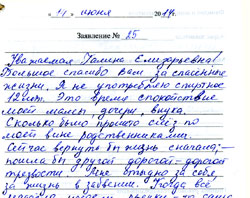 „ 11 " июня 2014г.
Заявление № 25
Уважаемая Галина Елизарьевна!
Большое спасибо Вам за спасение
жизни. Я не употребляю спиртное
12 лет. Это время спокойствие
моей мамы, дочери, внука.
Сколько было пролито слёз по
моей вине родственниками.
Сейчас вернуть бы жизнь сначала –
пошла бы другой дорогой – дорогой
трезвости. Мне стыдно за себя,
за жизнь в забвении. Когда всё